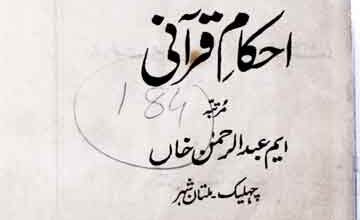 احکامِ قرآنی
184
مُرتبہ
ایم عبدالرحمٰن خاں
چہلیک۔ ملتان شہر